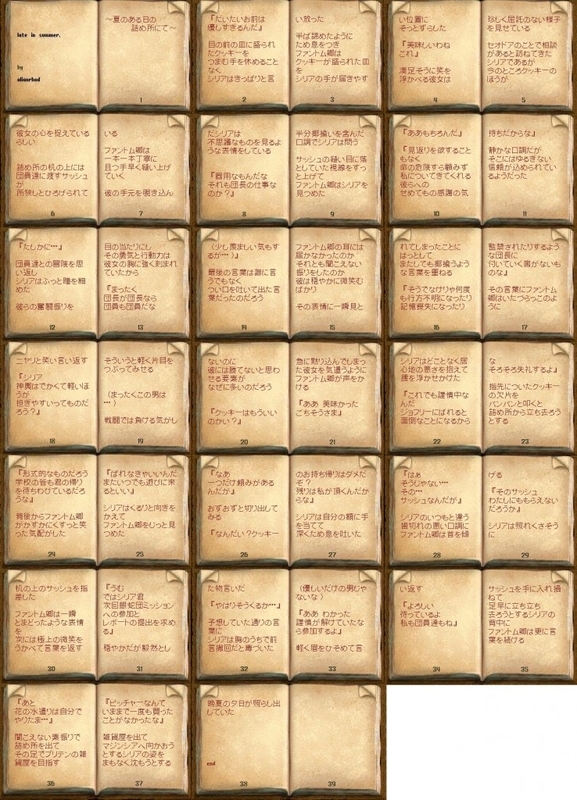 late in summer.
by
～夏のある日の
詰め所にて～
1
『だいたいお前は
優しすぎるんだ』
目の前の皿に盛られ
たクッキーを
つまむ手を休めること
なく
シリアはきっぱりと言
2
い放った
半ば諦めたように
ため息をつき
ファントム卿は
クッキーが盛られた皿
を
シリアの手が届きやす
3
い位置に
そっとずらした
『美味しいわね
これ』
満足そうに笑を
浮かべる彼女は
4
珍しく屈託のない様子
を見せている
セオドアのことで相談
があると訪ねてきた
シリアであるが
今のところクッキーの
ほうが
5
彼女の心を捉えている
らしい
詰め所の机の上には
団員達に渡すサッシュ
が
所狭しとひろげられて
6
いる
ファントム卿は
一本一本丁寧に
且つ手早く縫い上げ
ていく
彼の手元を覗き込ん
7
だシリアは
不思議なものを見るよう
な表情をしている
『器用なもんだな
それも団長の仕事な
のか？』
8
半分揶揄いを含んだ
口調でシリアは問う
サッシュの縫い目に落
としていた視線をすっ
と上げて
ファントム卿はシリアを
見つめた
9
『ああもちろんだ』
『見返りを求めること
もなく
命の危険すら顧みず
私についてきてくれる
彼らへの
せめてもの感謝の気
10
持ちだからな』
静かな口調だが
そこにはゆるぎない
信頼が込められてい
るようだった
11
『たしかに…』
団員達との冒険を思
い返し
シリアはふっと瞳を細
めた
彼らの奮闘振りを
12
目の当たりにし
その勇気と行動力は
彼女の胸に強く刻まれ
ていたから
『まったく
団長が団長なら
団員も団員だな
13
(少し羨ましい気もす
るが…)
最後の言葉は誰に言
うでもなく
つい口を吐いて出た言
葉だったのだろう
14
ファントム卿の耳には
届かなかったのか
それとも聞こえない
振りをしたのか
彼は穏やかに微笑む
ばかり
その表情に一瞬見と
15
れてしまったことに
はっとして
またしても揶揄うよう
な言葉を重ねる
『そうでなけりゃ何度
も行方不明になったり
記憶喪失になったり
16
監禁されたりするよう
な団長に
付いていく者がいない
ものな』
その言葉にファントム
卿はいたづらっこのよう
に
17
ニヤリと笑い言い返す
『シリア
神輿はでかくて軽いほ
うが
担ぎやすいってものだ
ろう？』
18
そういうと軽く片目を
つぶってみせる
(まったくこの男は
…)
戦闘では負ける気がし
19
ないのに
彼には勝てないと思わ
せる要素が
なぜに多いのだろう
『クッキーはもういい
のかい？』
20
急に黙り込んでしまっ
た彼女を気遣うように
ファントム卿が声をか
ける
『ああ 美味かった
ごちそうさま』
21
シリアはどことなく居
心地の悪さを抱えて
腰を浮かせかけた
『これでも謹慎中な
んだ
ジョフリーにばれると
面倒なことになるから
22
な
そろそろ失礼するよ』
指先についたクッキー
の欠片を
パンパンと叩くと
詰め所から立ち去ろう
とする
23
『形式的なものだろう
学校の皆も君の帰り
を待ちわびているだろ
うな』
背後からファントム卿
がかすかにくすっと笑
った気配がした
24
『ばれなきゃいいんだ
またいつでも遊びに来
るといい』
シリアはくるりと向きを
かえて
ファントム卿をじっと見
つめた
25
『なあ
一つだけ頼みがある
んだが』
おずおずと切り出して
みる
『なんだい？クッキー
26
のお持ち帰りはダメだ
ぞ？
残りは私が頂くんだか
らな』
シリアは自分の額に手
を当てて
深くため息を吐いた
27
『はぁ
そうじゃない…
その…
サッシュなんだが』
シリアのいつもと違う
歯切れの悪い口調に
ファントム卿は首を傾
28
げる
『そのサッシュ
わたしにももらえない
だろうか』
シリアは照れくさそう
に
29
机の上のサッシュを指
差した
ファントム卿は一瞬
とまどったような表情
を
次には極上の微笑を
うかべて言葉を返す
30
『うむ
ではシリア君
次回銀蛇団ミッション
への参加と
レポートの提出を求め
る』
穏やかだが毅然とし
31
た物言いだ
『やはりそうくるか…』
予想していた通りの言
葉に
シリアは胸のうちで前
言撤回だと毒づいた
32
(優しいだけの男じゃ
ないな)
『ああ わかった
謹慎が解けていたな
ら参加するよ』
軽く眉をひそめて言
33
い返す
『よろしい
待っているよ
私も団員達もね』
34
サッシュを手に入れ損
ねて
足早に立ち去
ろうとするシリアの
背中に
ファントム卿は更に言
葉を続ける
35
『あと
花の水遣りは自分で
やりたま…』
聞こえない素振りで
詰め所を出て
その足でブリテンの雑
貨屋を目指す
36
『ピッチャーなんて
いままで一度も買った
ことがなかったな』
雑貨屋を出て
マジンシアへ向かおう
とするシリアの姿を
まもなく沈もうとする
37
晩夏の夕日が照らし出
していた
end
38
39